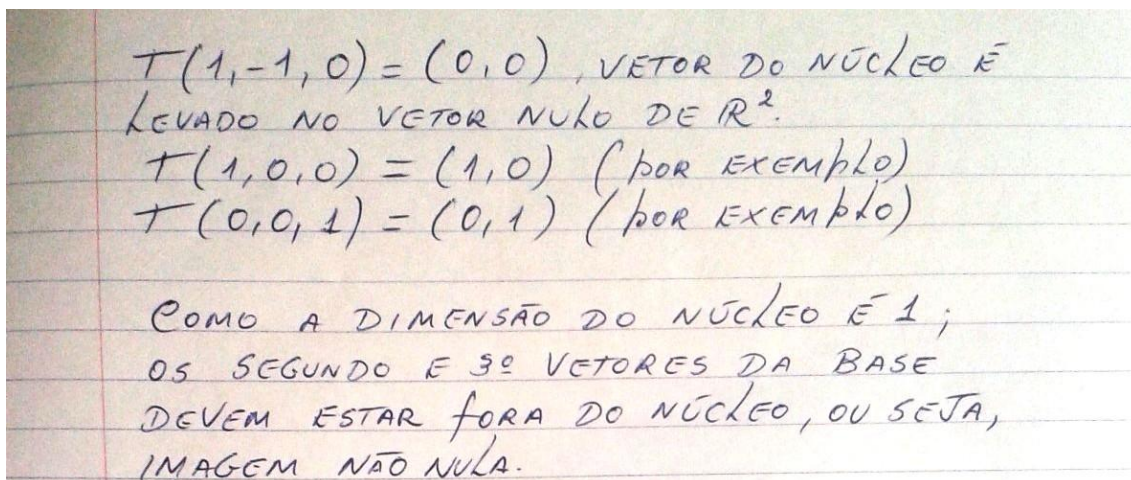 T(1,-1,0) = (0,0), VETOR DO NÚCLEO É
LEVADO NO VETOR NULO DE R².
T(1,0,0) = (1,0) (POR EXEMPLO)
T(0,0,1) = (0,1) (POR EXEMPLO)
COMO A DIMENSÃO DO NÚCLEO É 1;
OS SEGUNDO E 3º VETORES DA BASE
DEVEM ESTAR FORA DO NÚCLEO, OU SEJA,
IMAGEM NÃO NULA.